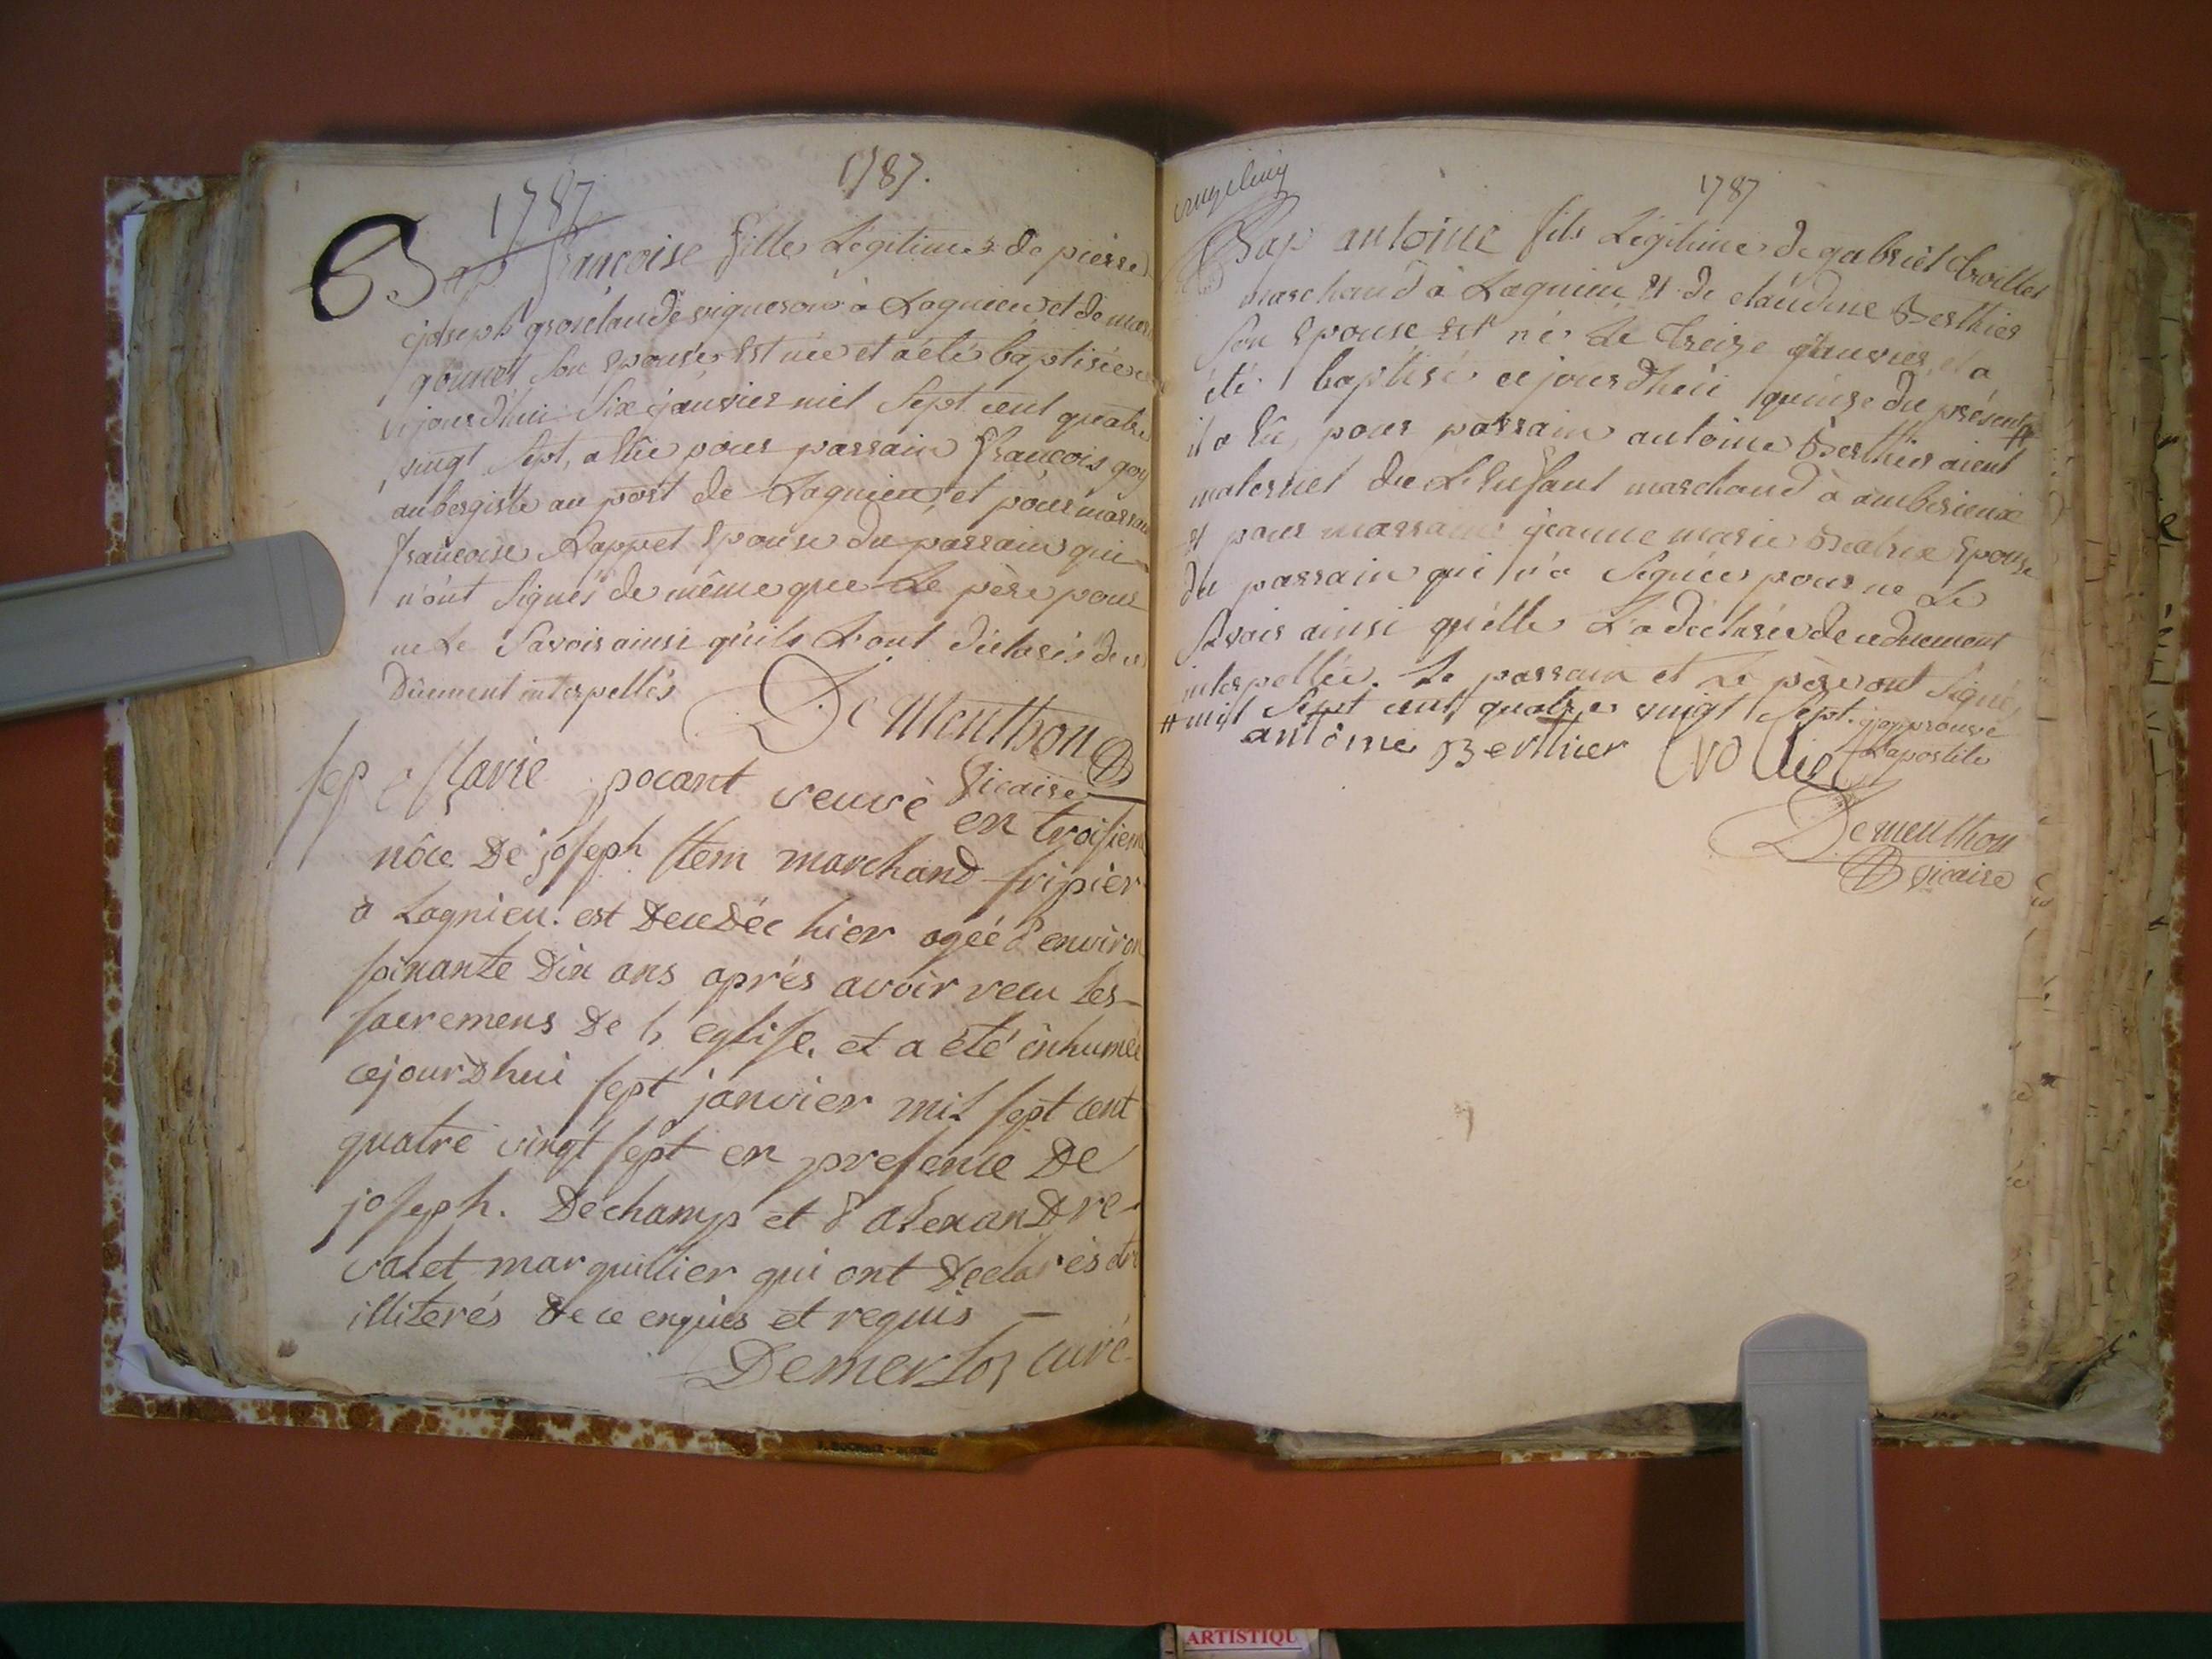 1787.
1787
Bap françoise fille Légitime de pierre
joseph grosclaude vigneron à Lagnieu et de marie
gounet son Epouse, Est née et a été baptisée
cejourdhui six janvier mil Sept cent quatre
vingt Sept, a Eû pour parrain françois goy
aubergiste au port de Lagnieu, et pour marraine
françoise Rappet Epouse du parrain qui
n'ont Signés de même que Le père pour
ne Le Savoir ainsi qu'ils L'ont déclarés de ce
Dûement interpellés
De Menthon
Vicaire
Sep Marie pocant veuve en troisieme
nôce De joseph stem marchand fripier
a Lagnieu. est Decedée hier agée d'environ
soixante Dix ans aprés avoir recu les
sacremens De L eglise, et a été inhumée
cejourdhui sept janvier mil sept cent
quatre vingt sept en presence De
joseph. Dechamp et d'alexandre
valet marguillier qui ont Declarés etre
illiterés De ce enquis et requis
Demerloz curé
1787
Bap antoine fils Légitime de gabriel
marchand à Lagnieu Et de claudine Berthier
Son Epouse Est né Le Treize janvier, et a
été baptisé cejourdhui quinze du présent #
il a Eû, pour parrain antoine Berthier aieul
maternel de L'Enfant marchand à amberieux
Et pour marraine jeanne marie Epouse
du parrain qui n'a Signée pour ne Le
Savoir ainsi qu'elle L'a déclarée de ce dûement
interpellée. Le parrain et Le père ont Signé,
# mil Sept cent quatre vingt Sept. j'approuve
L'apostile
antoine Berthier
De menthon
vicaire
ARTISTIQU